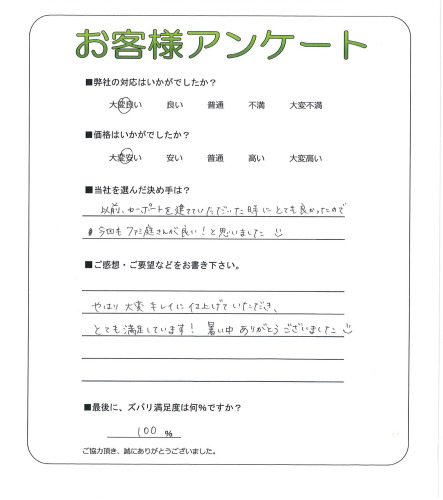 お客様アンケート
■弊社の対応はいかがでしたか？
大変良い 良い 普通 不満 大変不満
■価格はいかがでしたか？
大変安い 安い 普通 高い 大変高い
■当社を選んだ決め手は？
以前、カーポートを建てていただいた時にとても良かったので
今回もファミ庭さんが良い！と思いました
■ご感想・ご要望などをお書き下さい。
やはり大変キレイに仕上げていただき、
とても満足しています！暑い中ありがとうございました
■最後に、ズバリ満足度は何%ですか？
100 %
ご協力頂き、誠にありがとうございました。